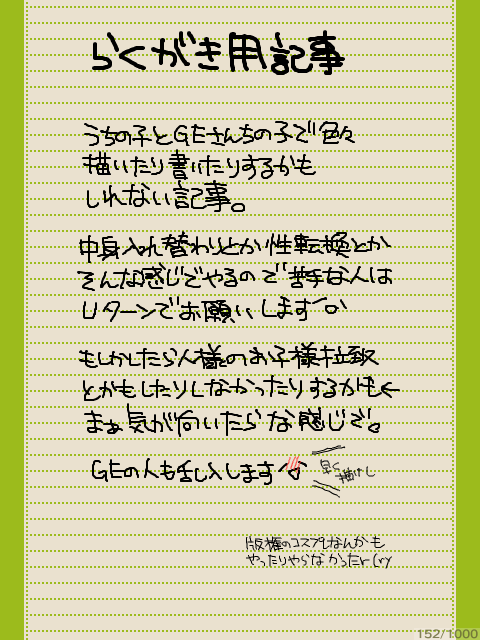 らくがき用記事
うちの子とGEさんちの子で色々
描いたり書いたりするかも
しれない記事。
中身入れ替わりとか性転換とか
そんな感じでやるので苦手な人は
Uターンでお願いします
もしかしたら人様のお子様拉致
とかもしたりしなかったりするかもく
まぁ気が向いたらな感じで。
GEの人も乱入します
早く
描けし
版権のコスプレなんかも
やったりやらなかったr(ry
152/1000